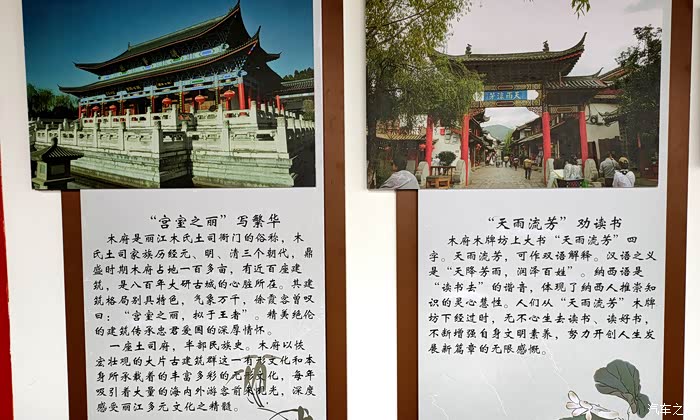 天雨流芳
“宫室之丽”写繁华
木府是丽江木氏土司衙门的俗称，木
氏土司家族历经元、明、清三个朝代，鼎
盛时期木府占地一百多亩，有近百座建
筑，是八百年大研古城的心脏所在。其建
筑格局别具特色，气象万千，徐霞客曾叹
曰：“宫室之丽，拟于王者”。精美绝伦
的建筑传承忠君爱国的深厚情怀。
一座土司府，半部民族史。木府以恢
宏壮观的大片古建筑群这一有形文化和本
身所承载着的丰富多彩的无形文化，每年
吸引着大量的海内外游客前来观光，深度
感受丽江多元文化之精髓。
“天雨流芳”劝读书
木府木牌坊上大书“天雨流芳”四
字。天雨流芳，可作双语解释。汉语之义
是“天降芳雨，润泽百姓”。纳西语是
“读书去”的谐音，体现了纳西人推崇知
识的灵心慧性。人们从“天雨流芳”木牌
坊下经过时，无不心生去读书、读好书，
不断增强自身文明素养，努力开创人生发
展新篇章的无限感慨。
汽车之